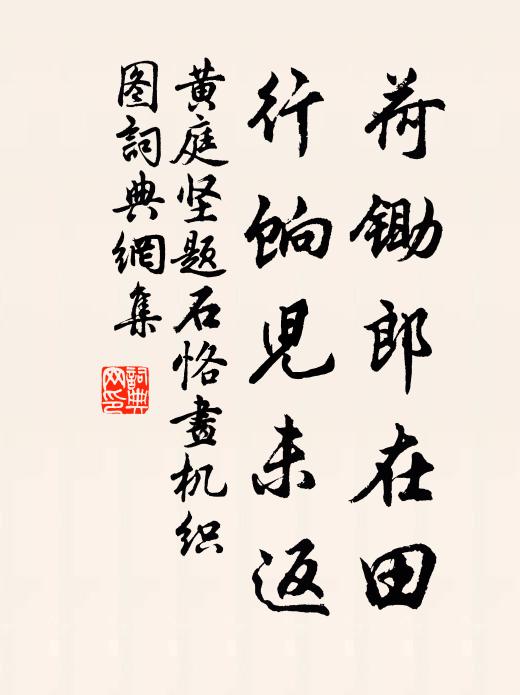 荷锄郎在田
行饷児未返
黄庭坚题石恪畫机织
图詞典網集
詞典
网印